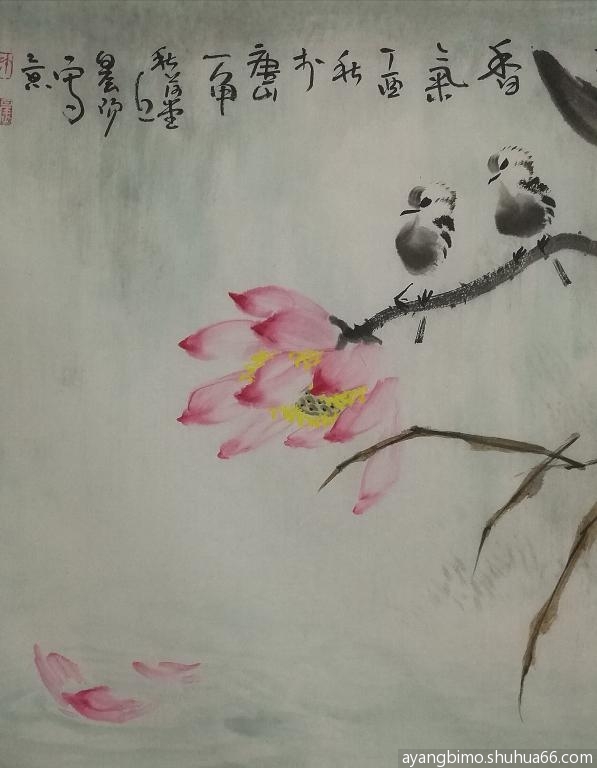 香氣丁酉秋於唐山一角秋荷堂晨阳写
ayangbimo.shuhua66.com